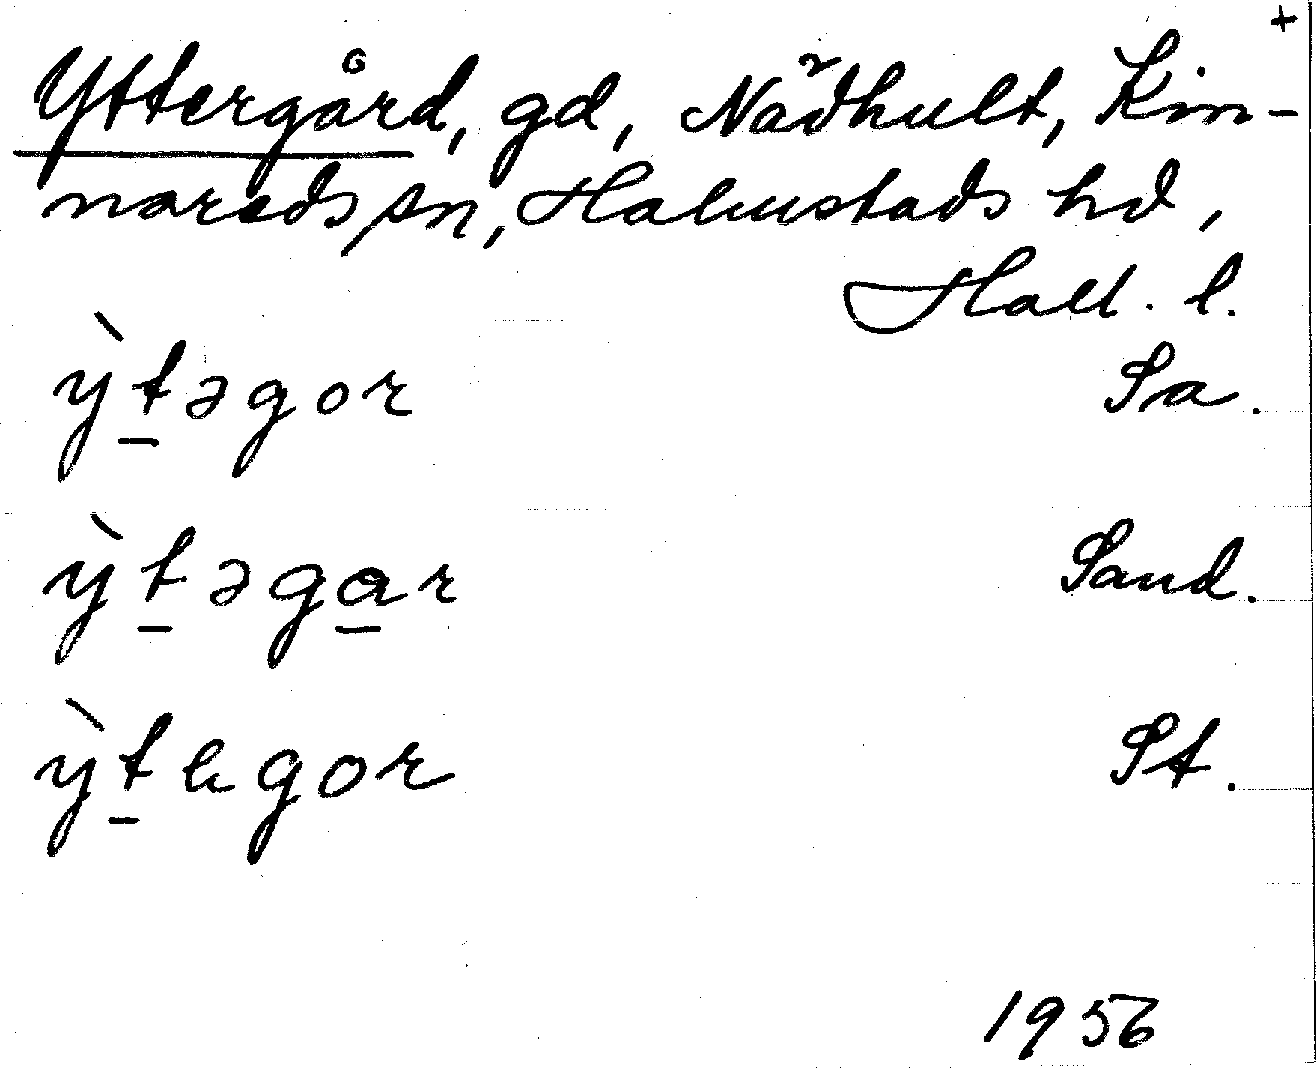 +
Yttergård, gd, Nädhult, Kin-
nareds sn, Halmstads hd,
Hall. l.
y̍̀t̲əgor Sa.
ỳt̲əga̲r Sand.
ỳt̲egor St.
1956